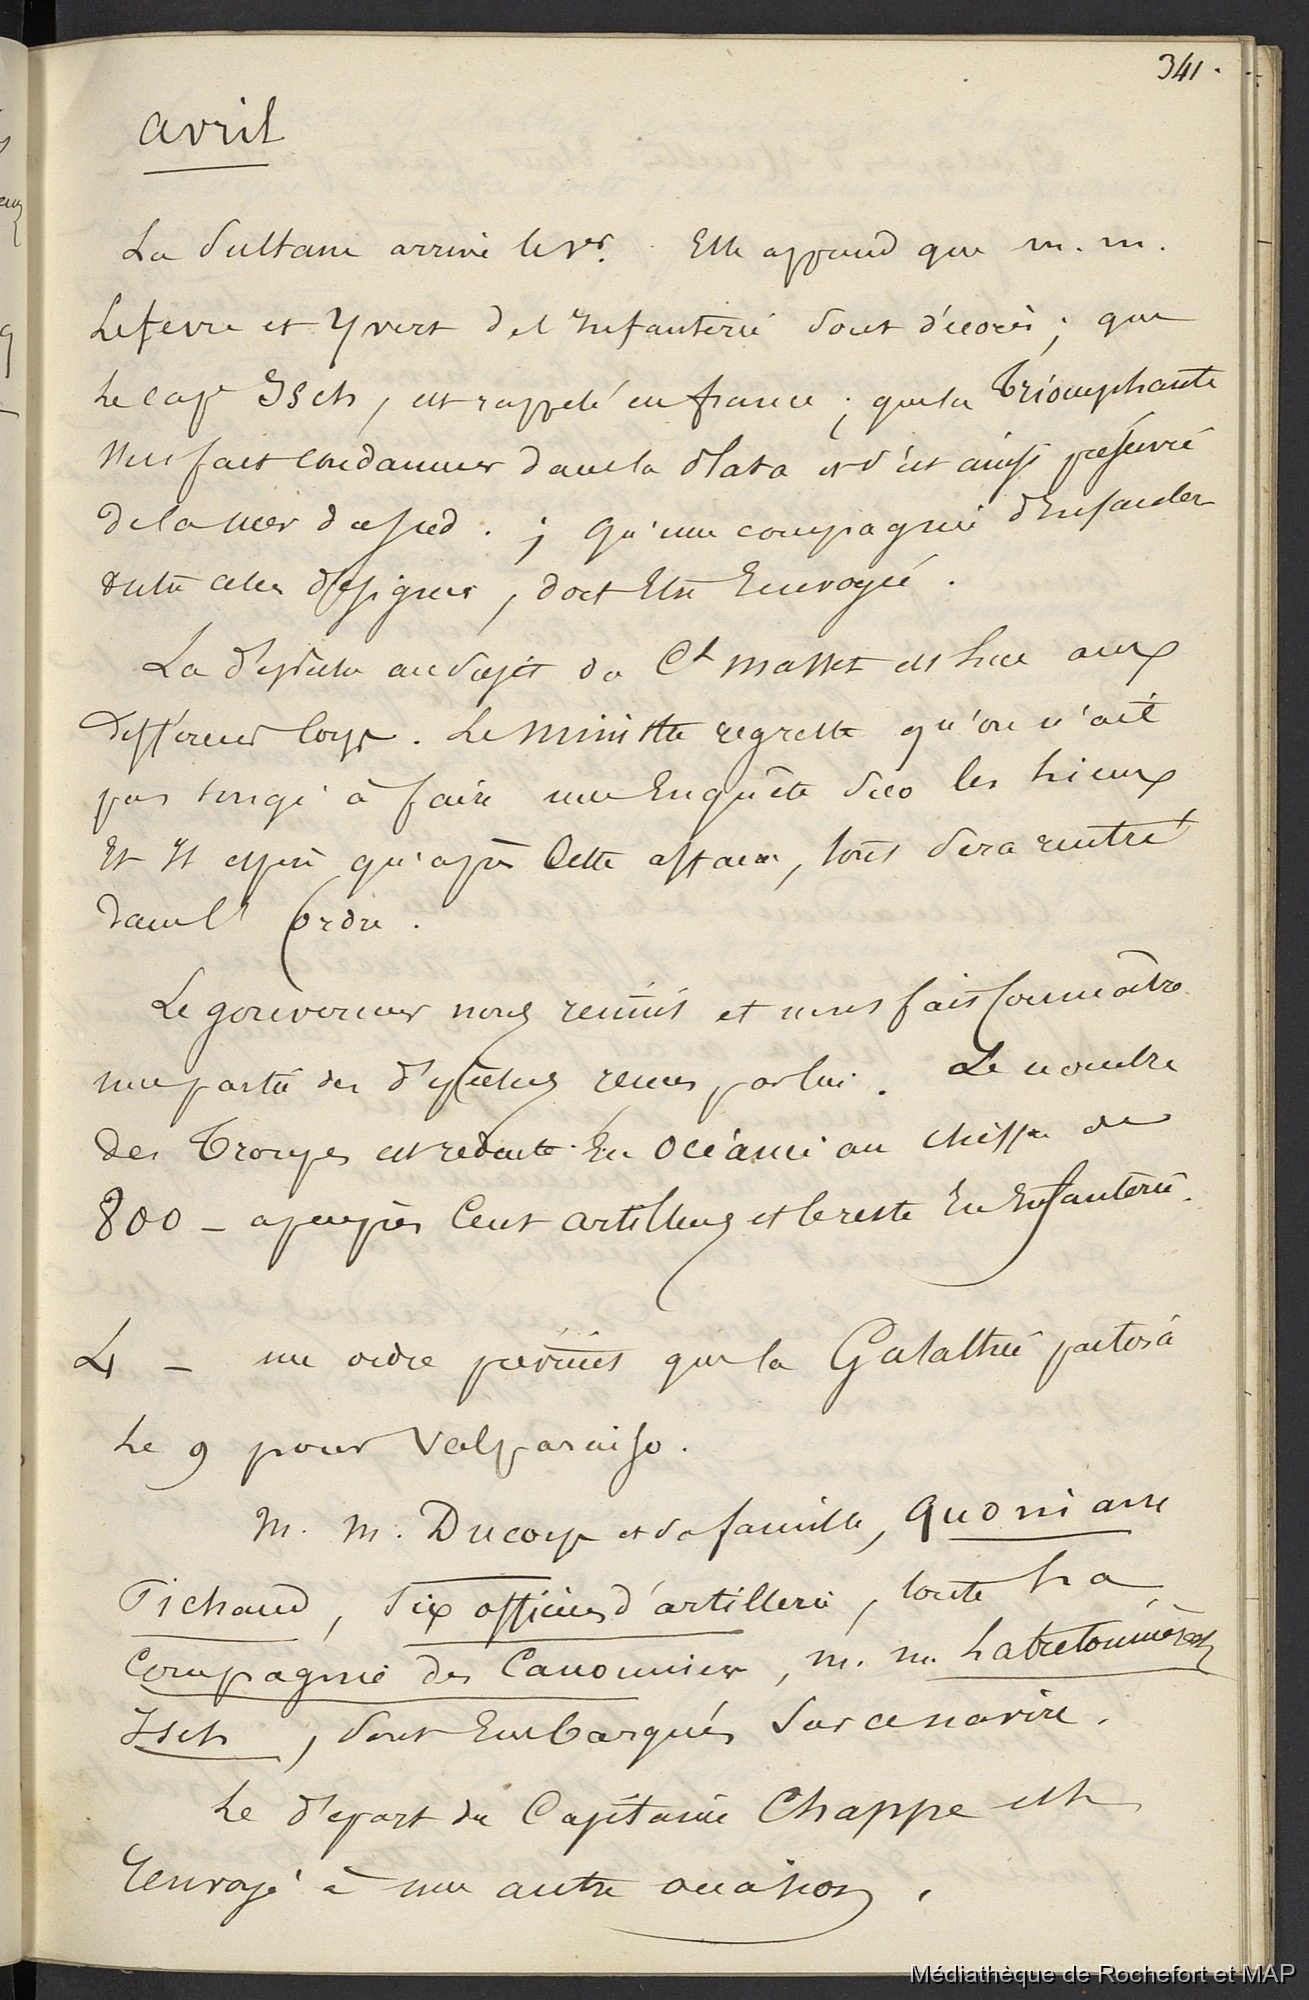 341.
avril
La Sultane arrive le 1er. Elle apprend que m. m.
Lefevre et Yvert de l'Infanterie sont décorés ; que
le capne Isch, est rappelé en france ; que la Triomphante
s'est fait condamner dans la Plata et s'est ainsi préservée
de la mer du Sud . ; qu'une compagnie d'Infanterie
outre celles désignées, doit Etre Envoyée .
La dépêche au sujet du Ct masset est lue aux
différens Corps . Le Ministre regrette qu'on n'ait
pas songé à faire une Enquête sur les lieux
Et Il espère qu'après Cette affaire, tout sera rentré
dans l' Ordre .
Le gouverneur nous réunit et nous fait Connaître
une partie des dépêches reçues par lui . Le nombre
des Troupes est réduite En Océanie au chiffre de
800 - à peu près Cent artilleurs et le reste En Infanterie.
4 - un ordre prévient que la Galathée partira
le 9 pour Valparaiso .
M. M. Ducorps et sa famille, Quoniam
Pichaud, Six officiers d'artillerie, toute la
Compagnie des Canonniers, m. m. Labretonnière
Isch, sont Embarqués sur ce navire .
Le départ du Capitaine Chappe est
Renvoyé à une autre occasion .
Médiathèque de Rochefort et MAP